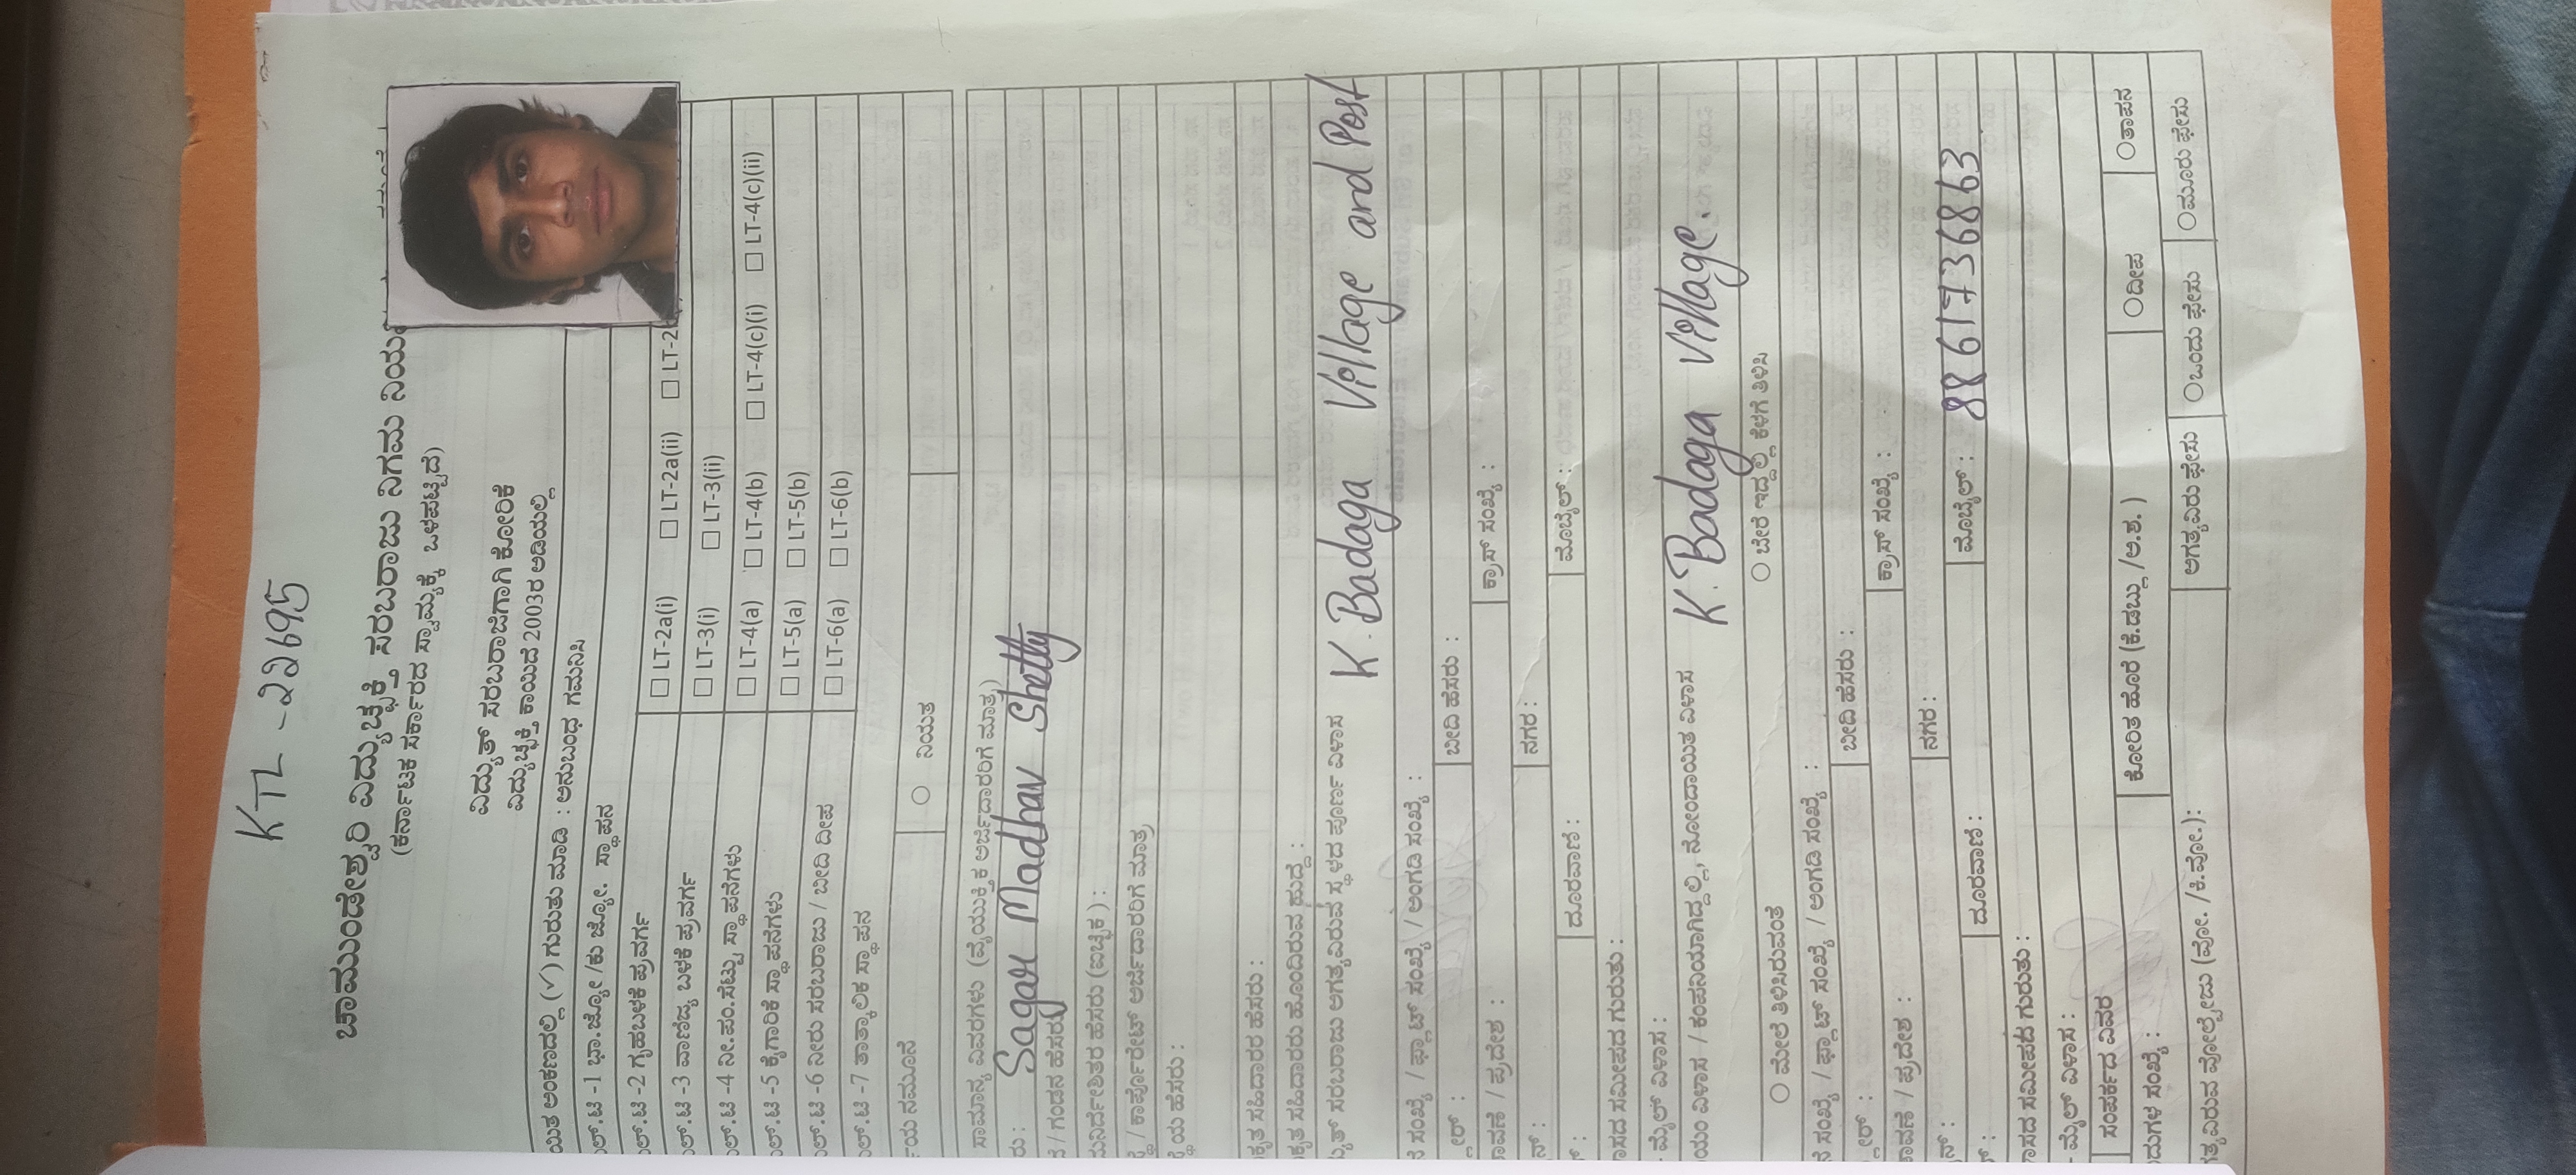 KTL - 22695
ಚಾಮುಂಡೇಶ್ವರಿ ವಿದ್ಯುಚ್ಛಕ್ತಿ ಸರಬರಾಜು ನಿಗಮ
(ಕರ್ನಾಟಕ ಸರ್ಕಾರದ ಸ್ವಾಮ್ಯಕ್ಕೆ ಒಳಪಟ್ಟಿದೆ)
ವಿದ್ಯುತ್ ಸರಬರಾಜಿಗಾಗಿ ಕೋರಿಕೆ
ವಿದ್ಯುಚ್ಛಕ್ತಿ ಕಾಯಿದೆ 2003ರ ಅಡಿಯಲ್ಲಿ
ಅಂಕಣದಲ್ಲಿ (✓) ಗುರುತು ಮಾಡಿ : ಅನುಬಂಧ ಗಮನಿಸಿ
-1 ಭಾ.ಜ್ಯೋ /ಕು ಜ್ಯೋ. ಸ್ಥಾಪನ
-2 ಗೃಹಬಳಕೆ ಪ್ರವರ್ಗ ☐ LT-2a(i) ☐ LT-2a(ii) ☐
-3 ವಾಣಿಜ್ಯ ಬಳಕೆ ಪ್ರವರ್ಗ ☐ LT-3(i) ☐ LT-3(ii)
-4 ನೀ.ಪಂ.ಸೆಟ್ಟು ಸ್ಥಾಪನೆಗಳು ☐ LT-4(a) ☐ LT-4(b) ☐ LT-4(c)(i) ☐ LT-4(c)(ii)
-5 ಕೈಗಾರಿಕೆ ಸ್ಥಾಪನೆಗಳು ☐ LT-5(a) ☐ LT-5(b)
-6 ನೀರು ಸರಬರಾಜು / ಬೀದಿ ದೀಪ ☐ LT-6(a) ☐ LT-6(b)
-7 ತಾತ್ಕಾಲಿಕ ಸ್ಥಾಪನ
ನಮೂನೆ ○ ನಿಯತ
ಸಾಮಾನ್ಯ ವಿವರಗಳು (ವೈಯುಕ್ತಿಕ ಅರ್ಜಿದಾರರಿಗೆ ಮಾತ್ರ)
Sagar Madhav Shetty
/ ಗಂಡನ ಹೆಸರು
ಹೆಸರು (ಐಚ್ಛಿಕ) :
/ ಕಾರ್ಪೊರೇಟ್ ಅರ್ಜಿದಾರರಿಗೆ ಮಾತ್ರ
ಹೆಸರು :
ಸಹಿದಾರರ ಹೆಸರು :
ಸಹಿದಾರರು ಹೊಂದಿರುವ ಹುದ್ದೆ :
ಸರಬರಾಜು ಅಗತ್ಯವಿರುವ ಸ್ಥಳದ ಪೂರ್ಣ ವಿಳಾಸ K. Badaga Village and Post
ಸಂಖ್ಯೆ / ಫ್ಲಾಟ್ ಸಂಖ್ಯೆ / ಅಂಗಡಿ ಸಂಖ್ಯೆ :
ಬೀದಿ ಹೆಸರು :
/ ಪ್ರದೇಶ : ಕ್ರಾಸ್ ಸಂಖ್ಯೆ :
ನಗರ :
ದೂರವಾಣಿ : ಮೊಬೈಲ್ :
ಸಮೀಪದ ಗುರುತು :
ಮೈಲ್ ವಿಳಾಸ :
ವಿಳಾಸ / ಕಂಪನಿಯಾಗಿದ್ದಲ್ಲಿ, ನೋಂದಾಯಿತ ವಿಳಾಸ K. Badaga Village.
○ ಮೇಲೆ ತಿಳಿಸಿರುವಂತೆ ○ ಬೇರೆ ಇದ್ದಲ್ಲಿ ಕೆಳಗೆ ತಿಳಿಸಿ
ಸಂಖ್ಯೆ / ಫ್ಲಾಟ್ ಸಂಖ್ಯೆ / ಅಂಗಡಿ ಸಂಖ್ಯೆ :
ಬೀದಿ ಹೆಸರು :
/ ಪ್ರದೇಶ : ಕ್ರಾಸ್ ಸಂಖ್ಯೆ :
ನಗರ :
ದೂರವಾಣಿ : ಮೊಬೈಲ್ : 8861736863
ಸಮೀಪದ ಗುರುತು :
ಮೈಲ್ ವಿಳಾಸ :
ಸಂಪರ್ಕದ ವಿವರ
ಸಂಖ್ಯೆ : ಕೋರಿತ ಹೊರೆ (ಕೆ.ಡಬ್ಲು /ಅ.ಶ. ) ○ದೀಪ ○ತಾಪನ
ವೋಲ್ಟೇಜು (ವೋ. /ಕಿ.ವೋ.): ಅಗತ್ಯವಿರು ಫೇಸು ○ಒಂದು ಫೇಸು ○ಮೂರು ಫೇಸು